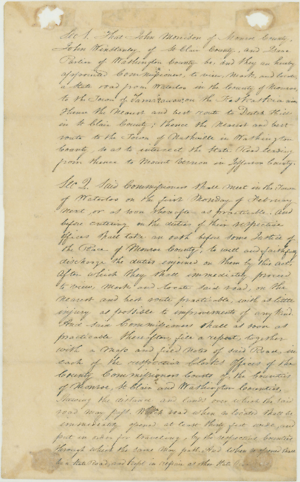 Sec 1. That John Morrison of Monroe County,
John Winstanley, of St Clair County, and
of Washington County be, and they are hereby
appointed Commissioners, to view, Mark, and locate
a State road from Waterloo in the County of Monroe,
to the Town of on the Kaskaskia river
thence the nearest and best route to
in St Clair County, thence the nearest and best
route to the Town of Nashville in Washington
County, so as to intersect the State Road leading
from thence to Mount Vernon in Jefferson County.
Sec 2. Said Commissioners shall meet in the Town
of Waterloo on the first Monday of February
next or as soon thereafter as practicable, and
before entering on the duties of their respective
offices shall take an oath before some Justice of
the Peace, of Monroe County, to well and faithfully
discharge the duties enjoined on them by this act.
After which they shall immediately proceed
to view, Mark and locate said road, on the
nearest and best route practicable, with as little
injury as possible to improvements of any kind.
Commissioners shall as soon as
practicable thereafter, file a report, together
with a Map and field Notes of said Road, in
each of the respective Clerks offices of the
County Commissioners Courts in the Counties
of Monroe, St Clair and Washington Counties,
shewing the distance and lands over which the said
road may pass. road when so located shall be
considerably opened at least feet wide, and
put in order for traveling, by the respective Counties
through which the same may pass, and
State road and kept in repair as other